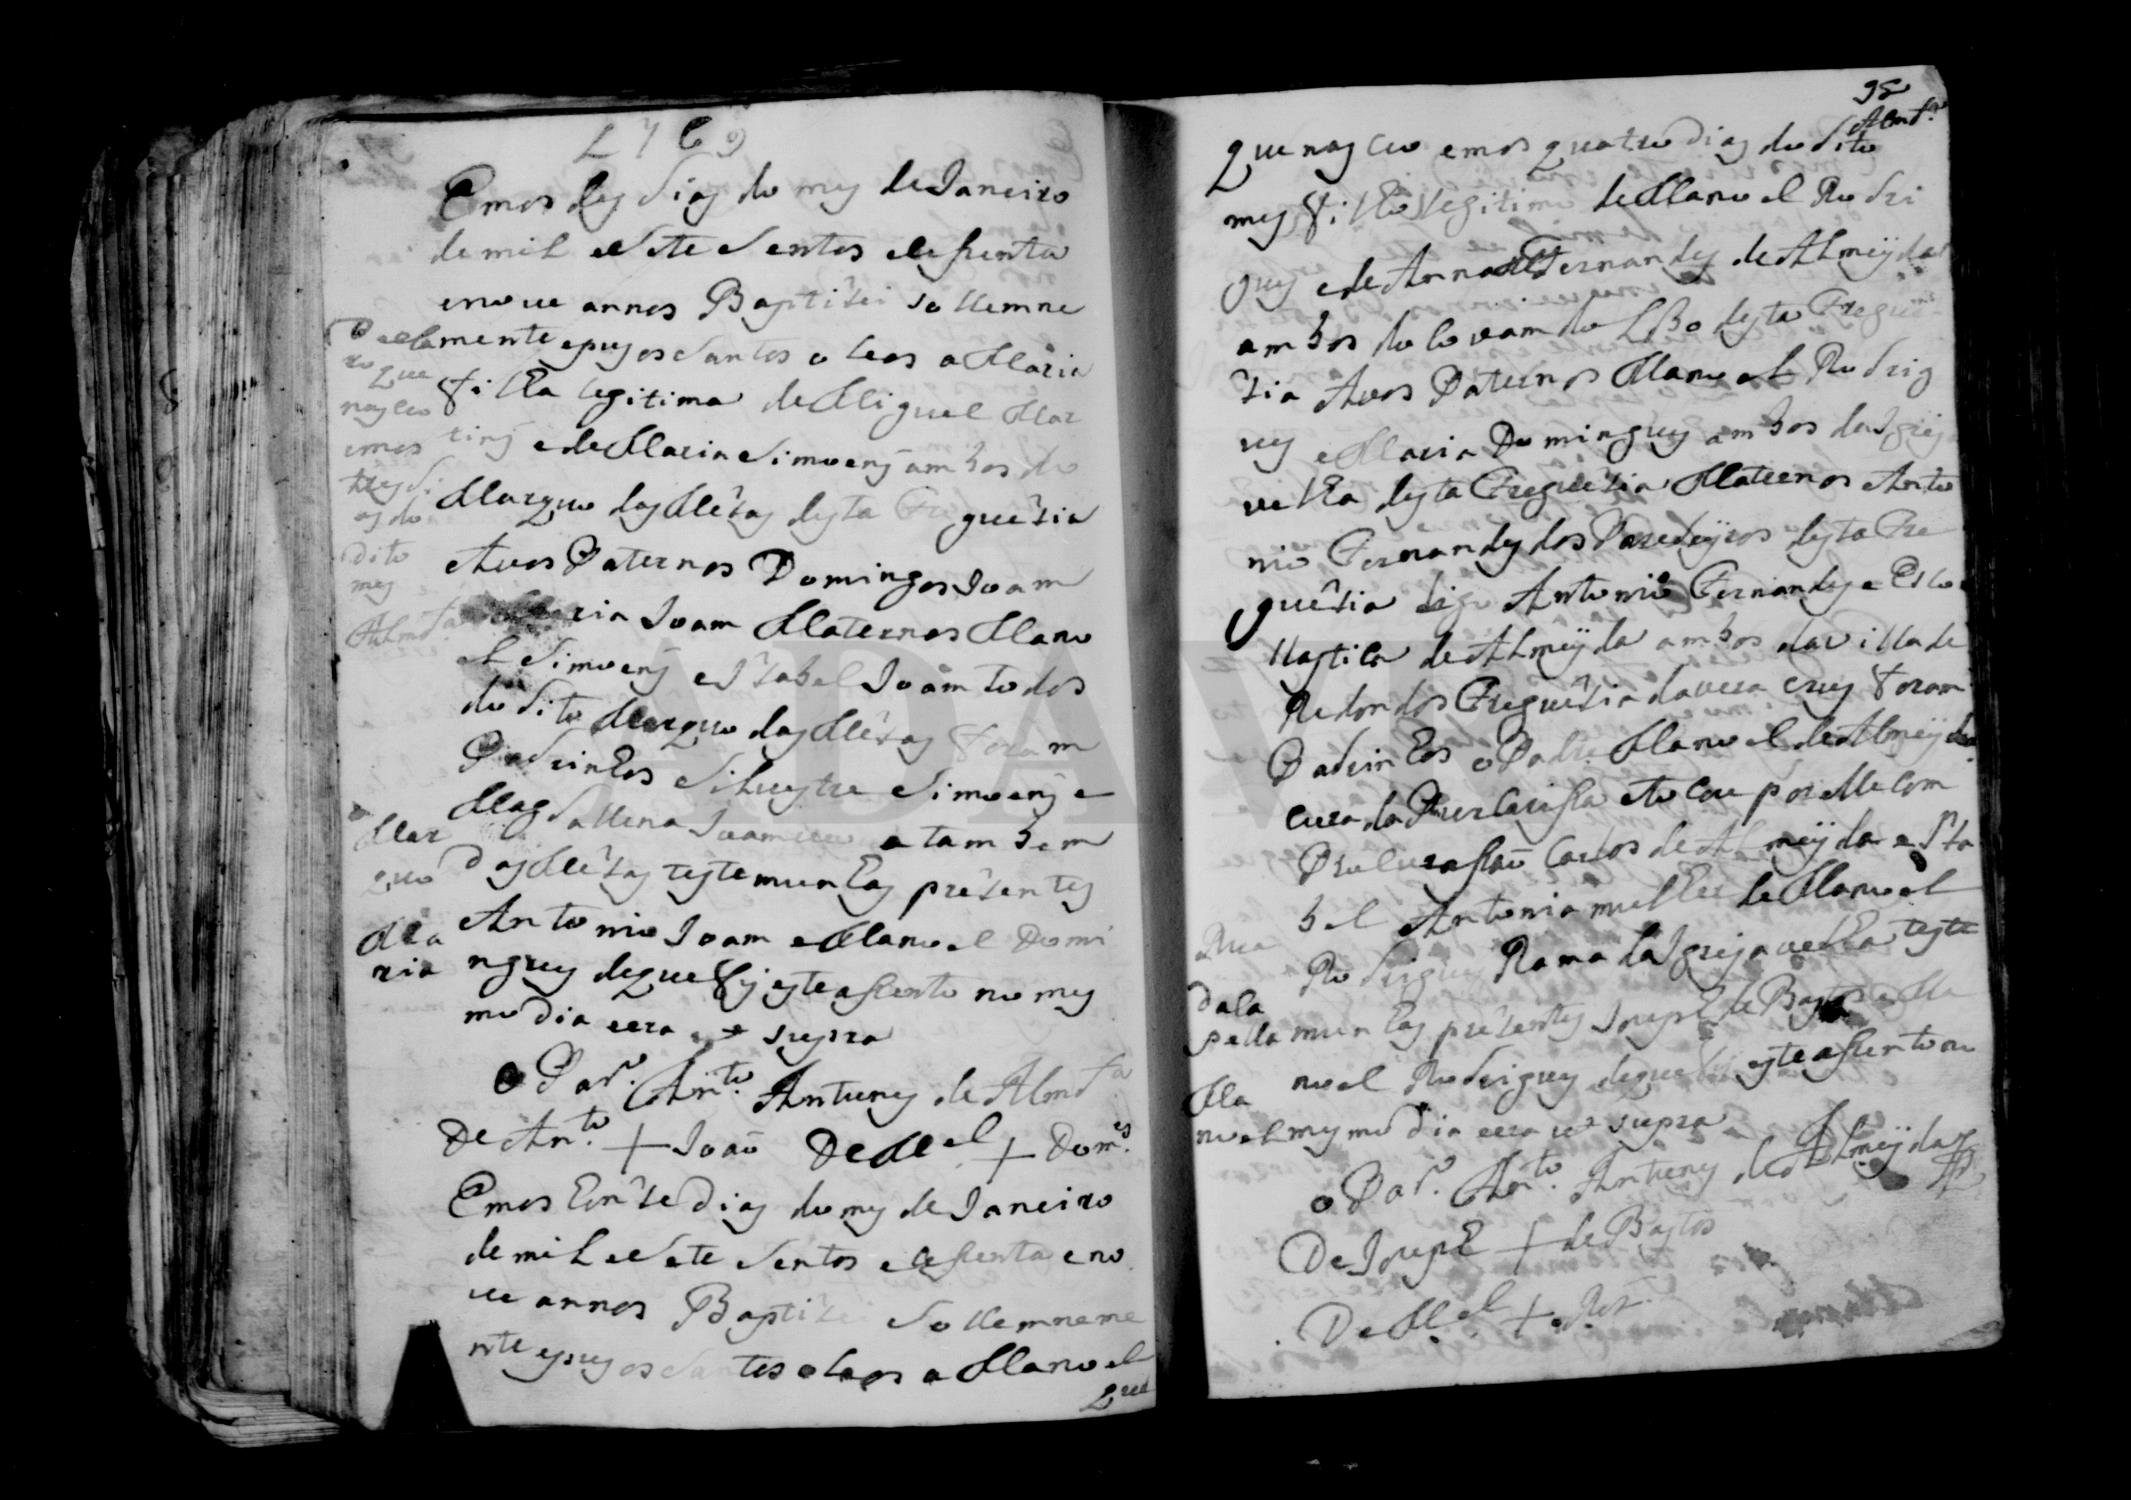 1769
Emos des dias do mes de Janeiro
de mil e sete sentos e sesenta
e nove annos Baptizei sollemne
mente e pus os santos oleos a Maria
filha legitima de Miguel Mar
tins e de Maria Simoens ambos do
Marquo das Mezas desta Freguezia
Avos Paternos Domingos Joam
Maria Joam Maternos Mano
el Simoens e Izabel Joam todos
do dito Marquo das Mezas foram
Padrinhos Silvestre Simoens e
Magdallena Joam
das Mezas testemunhas prezentes
Antonio Joam e Manoel Domi
ngues de que fis este asento no mes
mo dia era supra
O Par.º Ant.º Antunes de Almd.ª
De Ant.º + João De M.el + Dom.es
Emos honze dias do mes de Janeiro
de mil e sete sentos e sesenta e no
ve annos Baptizei sollemneme
nte e pus os santos oleos a Manoel
que
Declaro que
nasceo
emos
tres di
as do
dito
mes
Almd.ª
Mar
quo
Ma
ria
98
Almd.ª
que nasceo emos quatro dias do dito
mes filho legitimo de Manoel Rodri
gues e de Anna Fernandes de Almeyda
ambos do desta Fregue
zia Avos Paternos Manoel Rodrig
ues e Maria Domingues ambos da Igreja
velha desta Freguezia Maternos Anto
nio Fernandes dos Paredeyros desta Fre
guezia digo Antonio Fernandes e Esco
llastica de Almeyda ambos da villa de
Redondos Freguezia da vera crus foram
Padrinhos o Padre Manoel de Almeyda
cura da e tocou por elle com
Procurasão Carlos de Almeyda e Iza
bel Antonia mulher de Manoel
Rodrigues Rama da Igreja velha teste
munhas prezentes Joseph de Bastos e Ma
noel Rodrigues de que fis este asento no
mesmo dia era ut supra
o Par.º Ant.º Antunes de Almeyda
De Joseph + de Bastos
De M.el + Roiz
Rua
da Ca
pella
Ma
noel